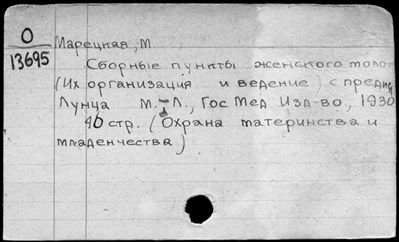 О
13695
Марецкая, М
Сборные пункты женского моло
(Их организация и ведение) с предис
Лунца М.-Л., ГосМед Изд-во, 1930
46 стр. (Охрана материнства и
младенчества)